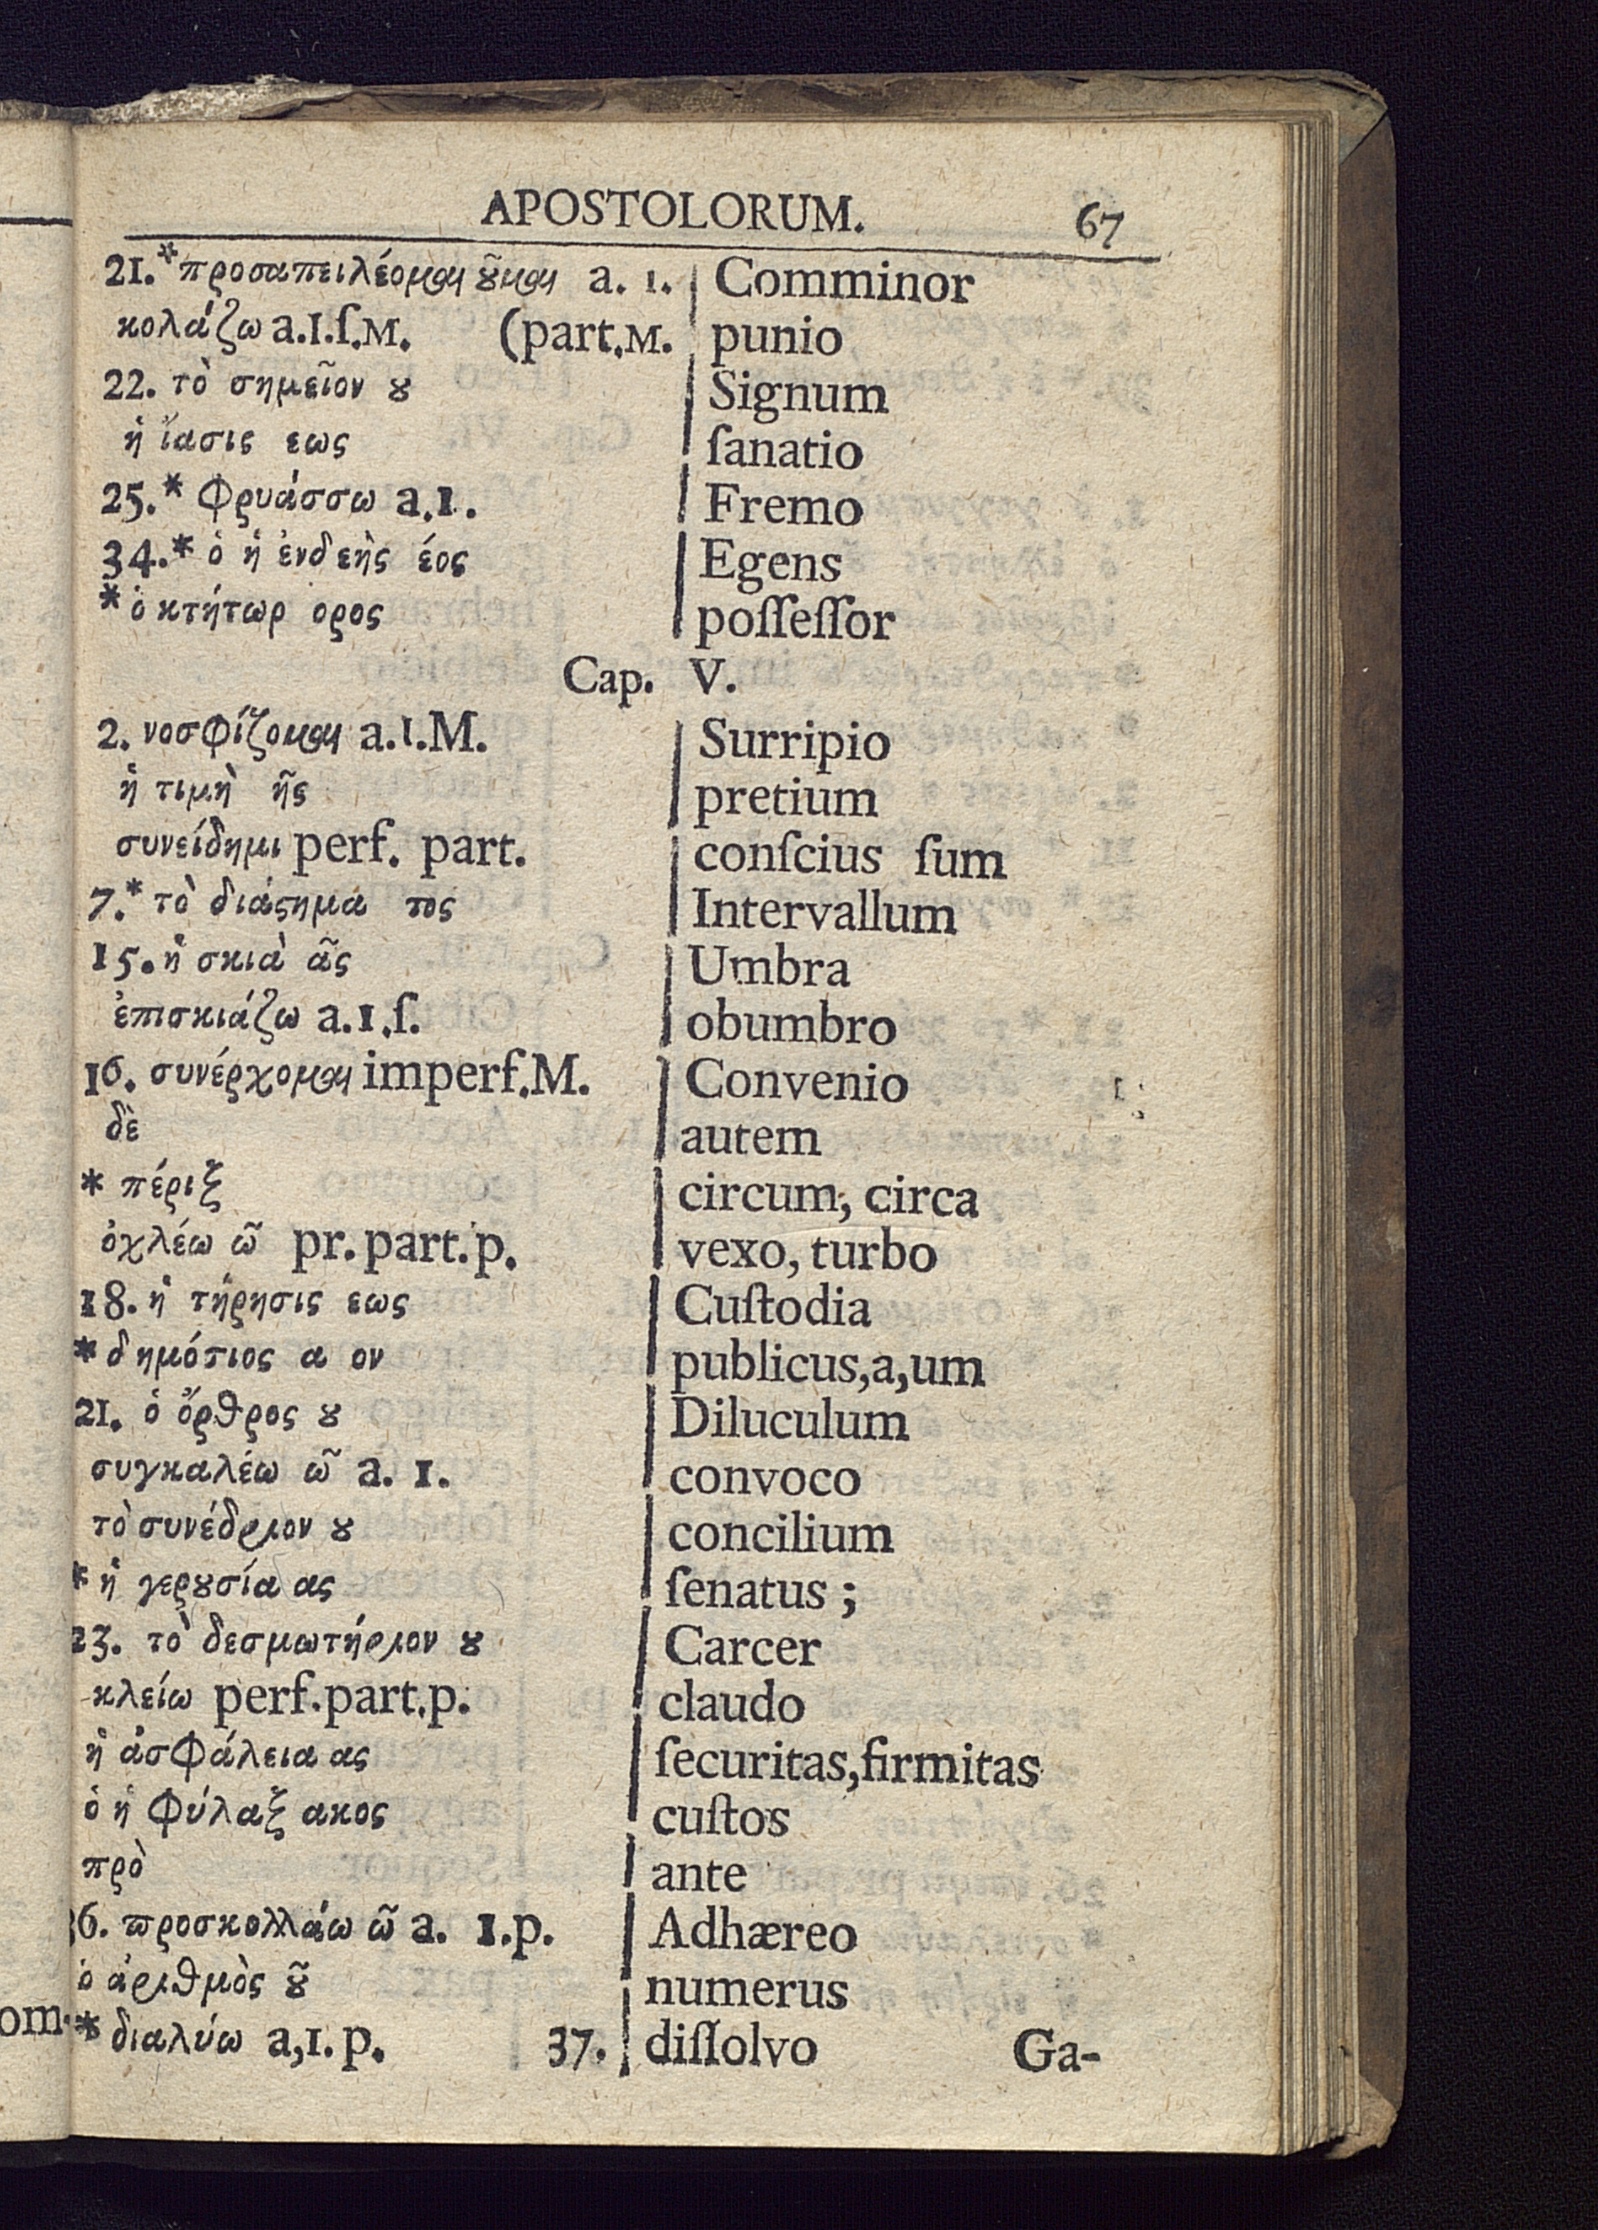 APOSTOLORUM. 67
21.*προσαπειλέομαι ȣ͂μαι a. 1. Comminor
κολάζω a.1.ſ.M. (part.M. punio
22. τὸ σημεῖον ȣ Signum
ἡ ἴασις εως ſanatio
25.* φρυάσσω a.1. Fremo
34.* ὁ ἡ ἐνδεὴς έος Egens
* ὁ κτήτωρ ορος poſſeſſor
Cap. V.
2. νοσφίζομαι a.1.M. Surripio
ἡ τιμὴ ῆς pretium
συνείδημι perf. part. conſcius ſum
7.* τὸ διάϛημα τος Intervallum
15. ἡ σκιὰ ᾶς Umbra
ἐπισκιάζω a.1.ſ. obumbro
16. συνέρχομαι imperf.M. Convenio
δὲ autem
* πέριξ circum, circa
ὀχλέω ῶ pr. part. p. vexo, turbo
18. ἡ τήρησις εως Cuſtodia
* δημόσιος α ον publicus,a,um
21. ὁ ὄρθρος ȣ Diluculum
συγκαλέω ῶ a. 1. convoco
τὸ συνέδριον ȣ concilium
* ἡ γερȣσία ας ſenatus ;
23. τὸ δεσμωτήριον ȣ Carcer
κλείω perf.part.p. claudo
ἡ ἀσφάλεια ας ſecuritas,firmitas
ὁ ἡ φύλαξ ακος cuſtos
πρὸ ante
36. προσκολλάω ῶ a. 1.p. Adhæreo
ὁ ἀριθμὸς ȣ͂ numerus
* διαλύω a,1. p. 37. diſſolvo Ga-
om-